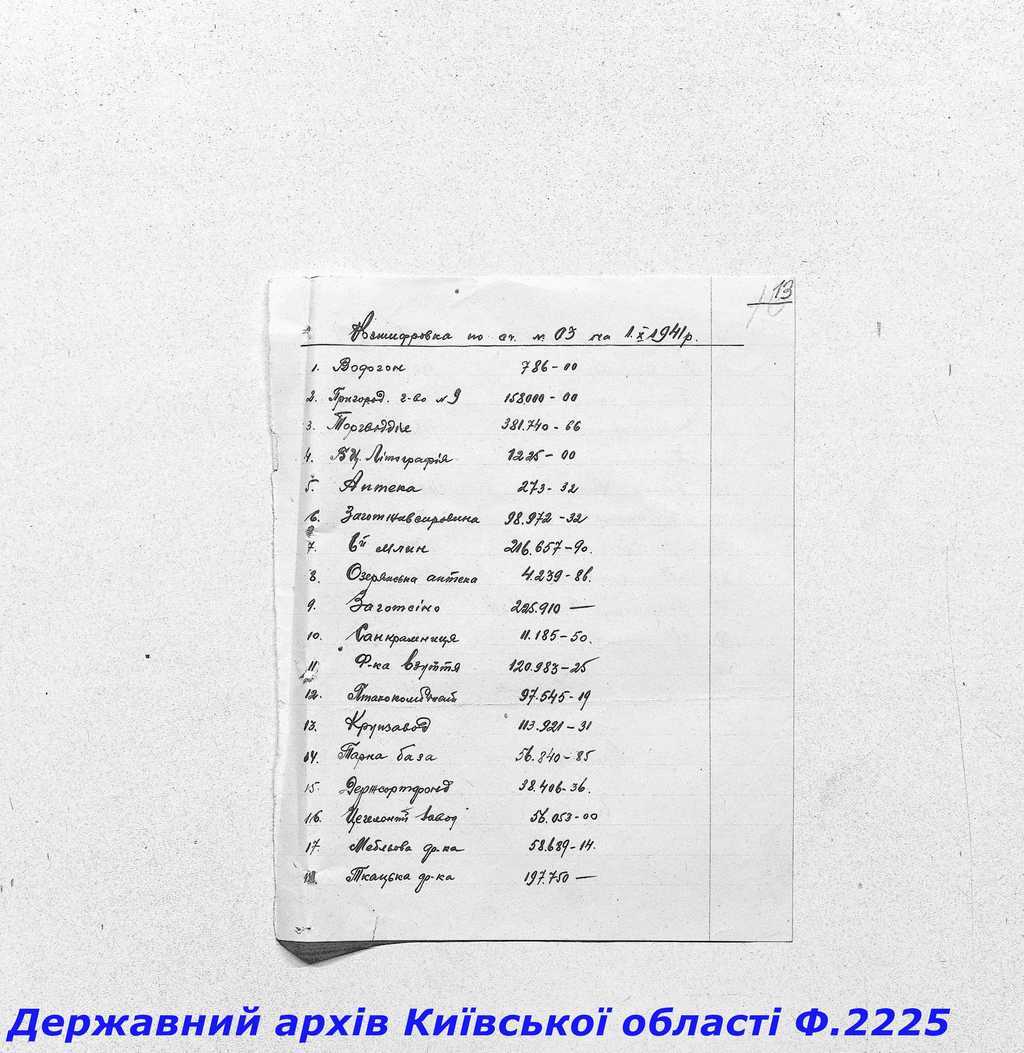 13
Розшифровка по сч. № 03 на 1.X 1941 р.
1. Водогон 786-00
2. Пригород. г-во № 9 158000-00
3. Торгвідділ 381.740-66
4. ВЦ. Літографія 1225-00
5. Аптека 273-32
6. Заготживсировина 98.972-32
7. 6й млин 216.657-90.
8. Озерянська аптека 4.239-86.
9. Заготсіно 225.910 —
10. Санкрамниця 11.185-50.
11. Ф-ка взуття 120.983-25
12. Птахокомбінат 97.545-19
13. Крупзавод 113.921-31
14. Тарна база 56.840-85
15. Держсортфонд 38.406-36.
16. Цегельний завод 56.053-00
17. Мебльова ф-ка 58.689-14.
18. Ткацька ф-ка 197.750 —
Державний архів Київської області Ф.2225